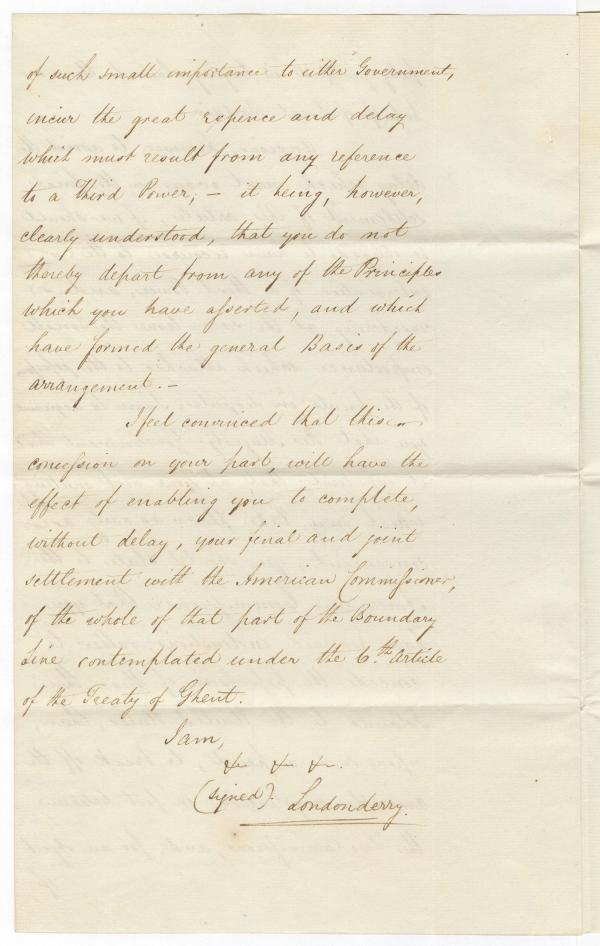 of such small importance to either Government,
incur the great expence and delay
which must result from any reference
to a Third Power; — it being, however,
clearly understood, that you do not
thereby depart from any of the Principles
which you have asserted, and which
have formed the general Basis of the
arrangement. —
I feel convinced that this
concession on your part, will have the
effect of enabling you to complete,
without delay, your final and joint
settlement with the American Commissioner,
of the whole of that part of the Boundary
Line contemplated under the 6th Article
of the Treaty of Ghent.
I am,
&c &c &c.
(signed). Londonderry.